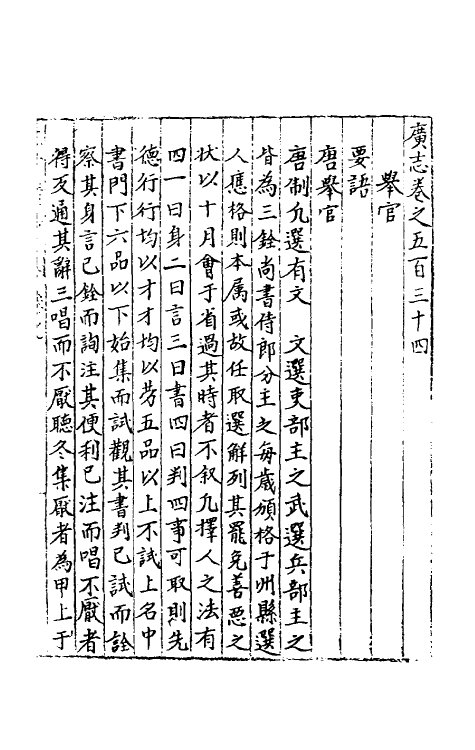 廣志卷之五百三十四
舉官
要語
唐舉官
唐制凡選有文　文選吏部主之武選兵部主之
皆為三銓尚書侍郎分主之每歲頒格于州縣選
人應格則本属或故任取選解列其罷免善惡之
状以十月會于省過其時者不叙凡擇人之法有
四一曰身二曰言三曰書四曰判四事可取則先
德行行均以才才均以劳五品以上不試上名中
書門下六品以下始集而試觀其書判已試而詮
察其身言已銓而詢注其便利已注而唱不厭者
得反通其辭三唱而不厭聽冬集厭者為甲上于